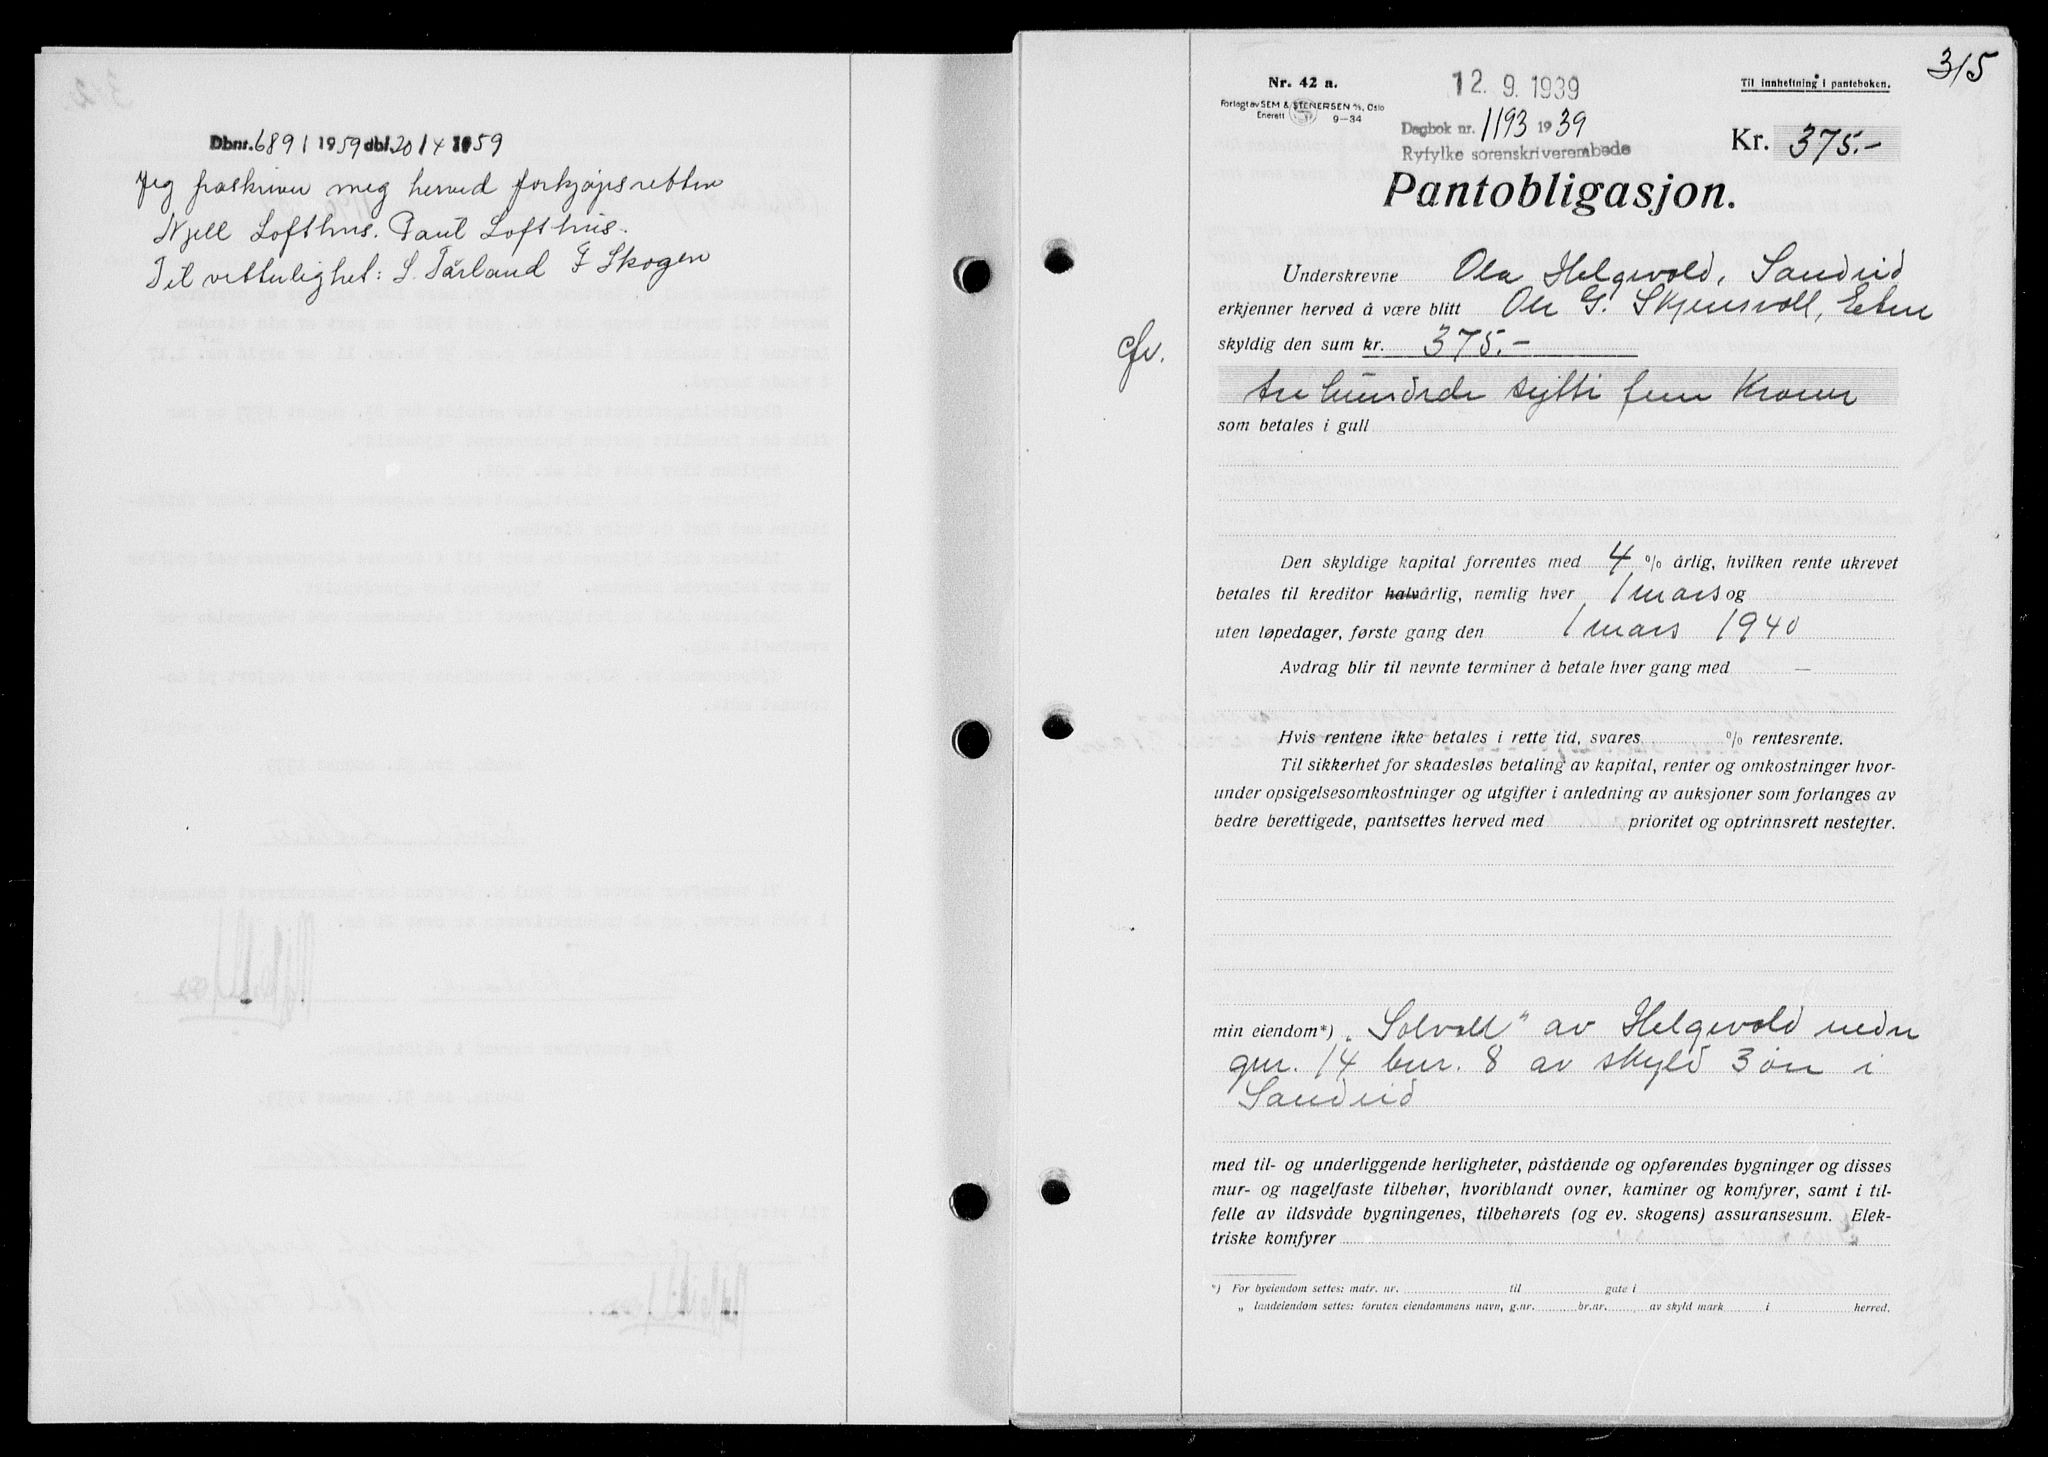 Dbnr. 6891 1959 dbl. 20/4 1959
Jeg fraskriver meg herved forkjøpsretten
Kjell Lofthus. Paul Lofthus.
Til vitterlighet: S. Tårland F Skogen
315
Nr. 42 a.
12. 9. 1939
Til innheftning i panteboken.
Forlagt av SEM & STENERSEN A/S, Oslo
Enerett 9-34
Dagbok nr. 1193 1939
Ryfylke sorenskriverembede
Kr. 375.-
Pantobligasjon.
Underskrevne Ola Helgevold, Sandeid
erkjenner herved å være blitt Ole G. Skjensvoll, Etne
skyldig den sum kr. 375.-
tre hundrede sytti fem Kroner
som betales i gull
Den skyldige kapital forrentes med 4 % årlig, hvilken rente ukrevet
betales til kreditor halvårlig, nemlig hver 1 mars og
uten løpedager, første gang den 1 mars 1940
Avdrag blir til nevnte terminer å betale hver gang med —
Hvis rentene ikke betales i rette tid, svares % rentesrente.
Til sikkerhet for skadesløs betaling av kapital, renter og omkostninger hvor-
under opsigelsesomkostninger og utgifter i anledning av auksjoner som forlanges av
bedre berettigede, pantsettes herved med prioritet og optrinnsrett nestefter.
min eiendom*) „Solvoll" av Helgevold nedre
gnr. 14 bnr. 8 av skyld 3 øre i
Sandeid
med til- og underliggende herligheter, påstående og opførendes bygninger og disses
mur- og nagelfaste tilbehør, hvoriblandt ovner, kaminer og komfyrer, samt i til-
felle av ildsvåde bygningenes, tilbehørets (og ev. skogens) assuransesum. Elek-
triske komfyrer
*) For byeiendom settes: matr. nr. til gate i
„ landeiendom settes: foruten eiendommens navn, g.nr. br.nr. av skyld mark i herred.